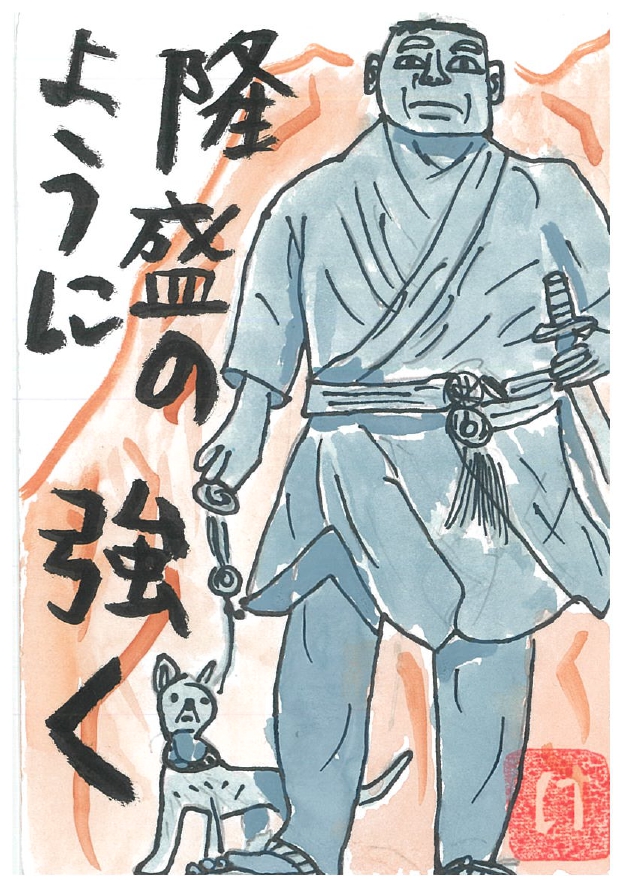 隆盛の
ように
強く
け